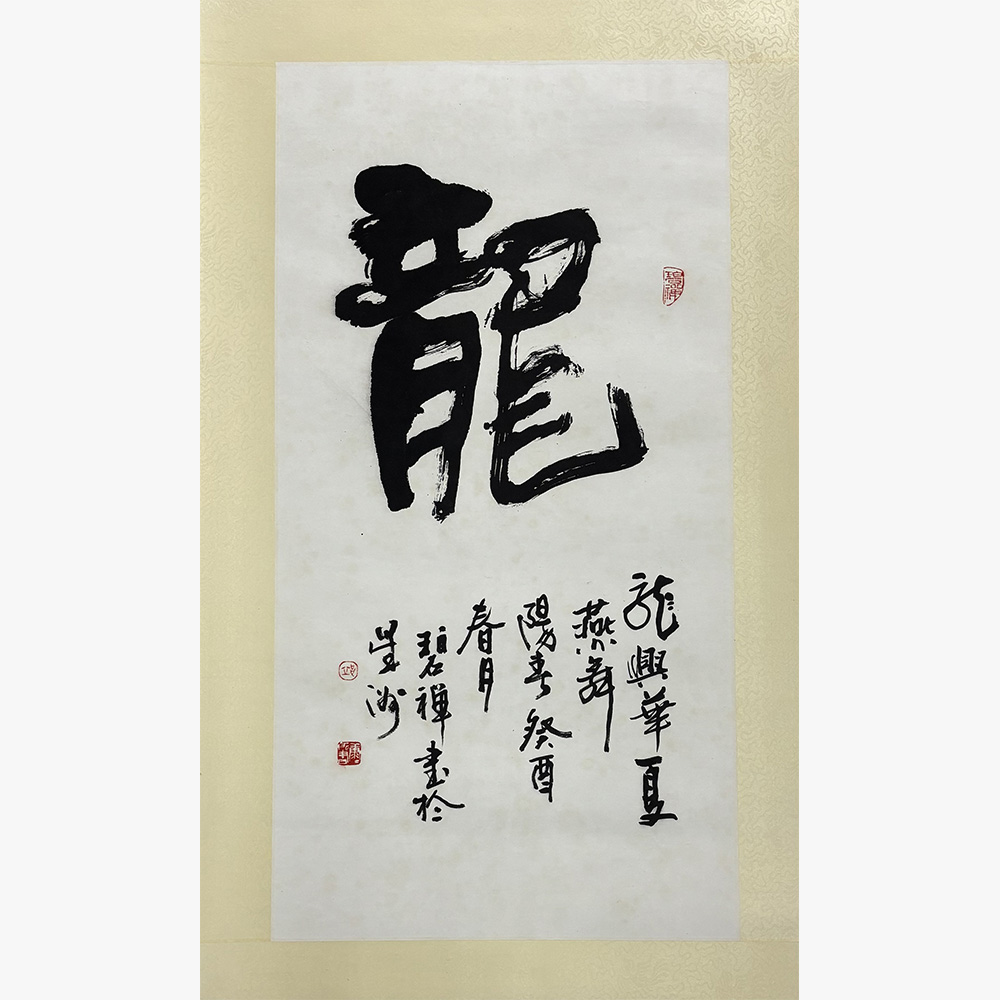 龍
龍興華夏
燕舞
陽春 癸酉
春月
碧禅書於
星洲